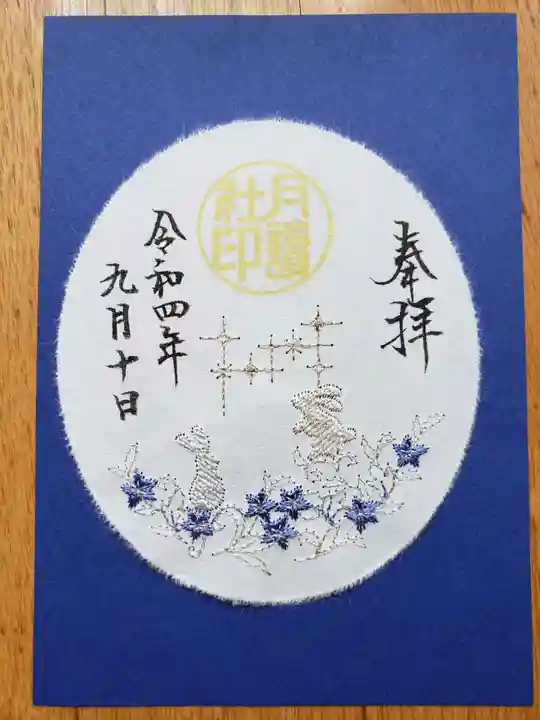 奉拝
月讀
社印
令和四年
九月十日